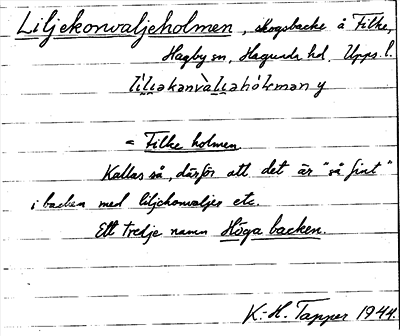 Liljekonvaljeholmen, skogsbacke å Filke,
Hagby sn, Hagunda hd, Upps. l.
= Filke holmen
Kallas så, därför att det är "så fint"
i backen med liljekonvaljer etc.
Ett tredje namn Höga backen.
K.-H. Tapper 1944.